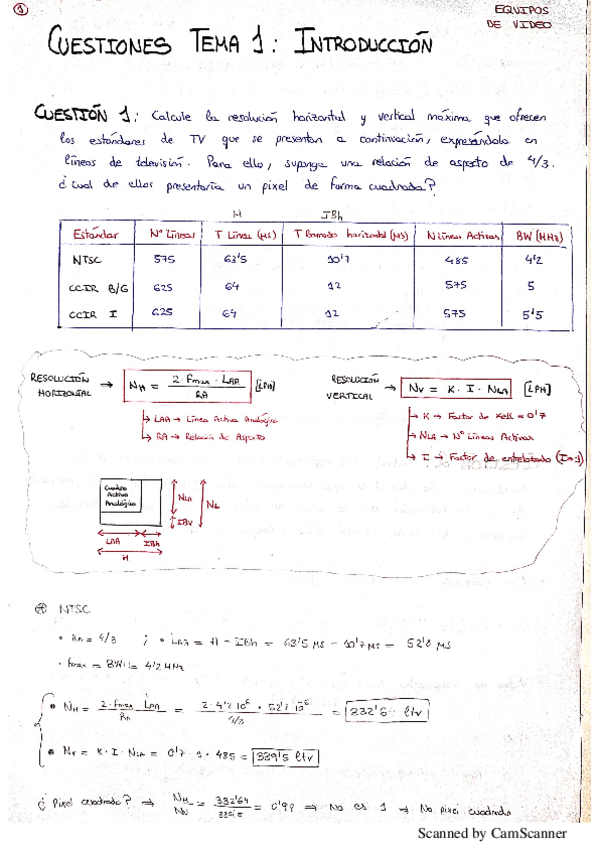 1
EQUIPOS
DE VIDEO
CUESTIONES TEMA 1: INTRODUCCIÓN
CUESTIÓN 1: Calcule la resolución horizontal y vertical máxima que ofrecen
los estándares de TV que se presentan a continuación, expresándola en
líneas de televisión. Para ello, suponga una relación de aspecto de 4/3.
¿Cual de ellos presentaría un pixel de forma cuadrada?
H IBh
Estándar Nº Líneas T Línea (µs) T Borrado horizontal (µs) N Líneas Activas BW (MHz)
NTSC 575 63'5 10'7 485 4'2
CCIR B/G 625 64 12 575 5
CCIR I 625 64 12 575 5'5
RESOLUCIÓN HORIZONTAL → NH = 2 · Fmax · LAA / RA [LPH]
↳ LAA → Línea Activa Analógica
↳ RA → Relación de Aspecto
RESOLUCIÓN VERTICAL → NV = K · I · NLA [LPH]
↳ K → Factor de Kell = 0'7
↳ NLA → Nº Líneas Activas
↳ I → Factor de entrelazado (I=1)
Cuadro
Activo
Analógico
NLA
NL
IBV
LAA IBh
H
NTSC
• RA = 4/3 ; • LAA = H - IBh = 63'5 µs - 10'7 µs = 52'8 µs
• Fmax = BW = 4'2 MHz
• NH = 2 · Fmax · LAA / RA = 2 · 4'2 · 10^6 · 52'8 · 10^-6 / 4/3 = 332'6 ltv
• NV = K · I · NLA = 0'7 · 1 · 485 = 339'5 ltv
¿Pixel cuadrado? → NH / NV = 332'64 / 339'5 = 0'98 → No es 1 → No pixel cuadrado
Scanned by CamScanner